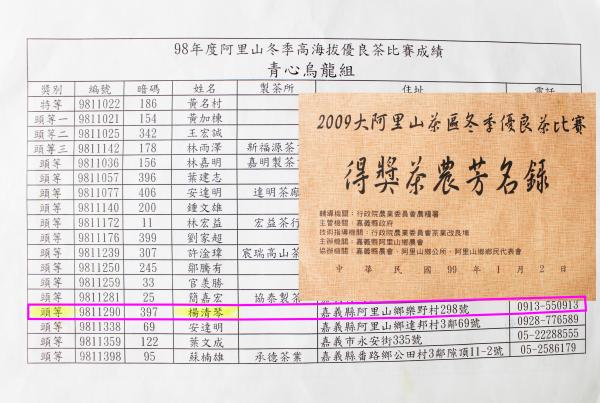 98年度阿里山冬季高海拔優良茶比賽成績
青心烏龍組
獎別 編號 暗碼 姓名 製茶所 住址 電話
特等 9811022 186 黃名村
頭等一 9811021 154 黃加棟
頭等二 9811025 342 王宏誠
頭等三 9811142 178 林雨澤 新福源茶
頭等 9811036 156 林嘉明 嘉明製茶
頭等 9811057 396 葉建志
頭等 9811077 406 安達明 達明茶廠
頭等 9811140 200 鍾文雄
頭等 9811172 11 林宏益 宏益茶行
頭等 9811176 399 劉家超
頭等 9811239 307 許淦瑋 宸瑞高山茶
頭等 9811250 245 鄒騰有
頭等 9811259 33 官羨勝
頭等 9811281 25 簡嘉宏 協泰製茶
頭等 9811290 397 楊清琴 嘉義縣阿里山鄉樂野村298號 0913-550913
頭等 9811338 69 安達明 嘉義縣阿里山鄉達邦村3鄰69號 0928-776589
頭等 9811359 120 葉文成 嘉義市永安街335號 05-22288555
頭等 9811398 95 蘇楠雄 承德茶業 嘉義縣番路鄉公田村3鄰隙頂11-2號 05-2586179
2009大阿里山茶區冬季優良茶比賽
得獎茶農芳名錄
輔導機關：行政院農業委員會農糧署
主管機關：嘉義縣政府
技術指導機關：行政院農業委員會茶業改良場
主辦機關：嘉義縣阿里山鄉農會
協辦機關：嘉義縣農會、阿里山鄉公所、阿里山鄉鄉民代表會
中華民國99年1月2日